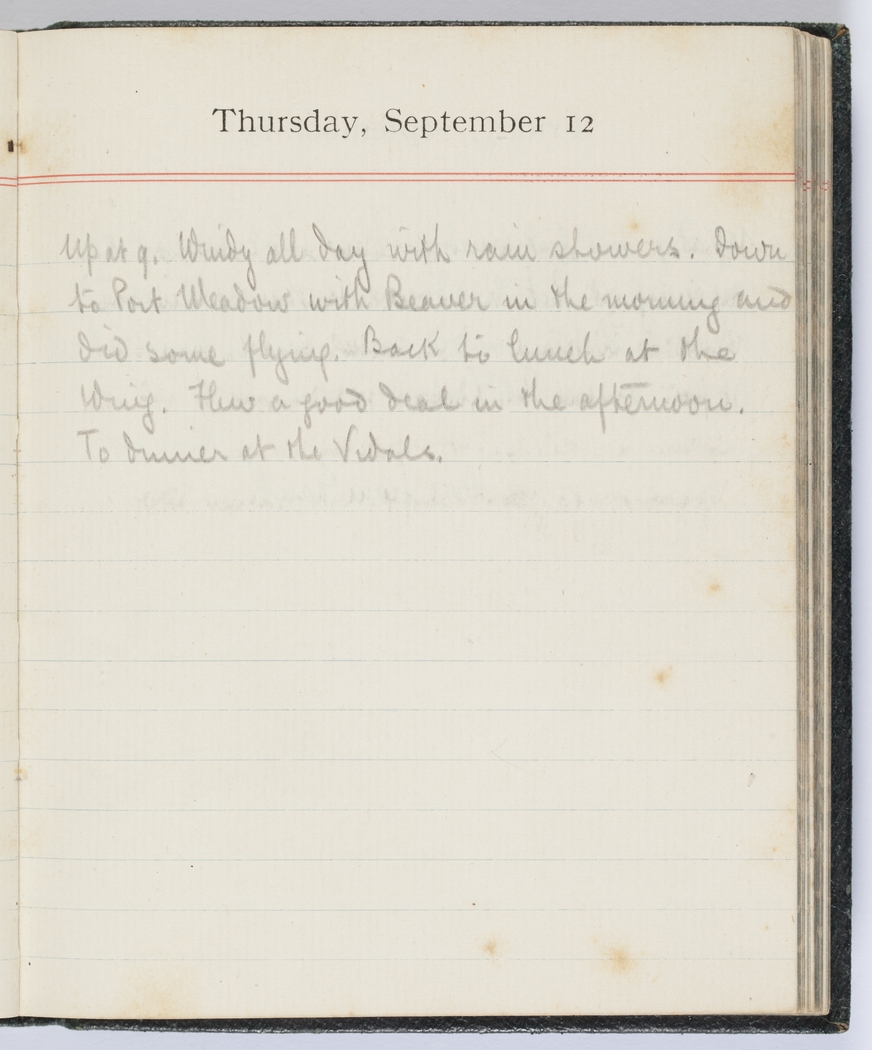 Thursday, September 12
Up at 9. Windy all day with rain showers. Down
to Port Meadow with Beaver in the morning and
did some flying. Back to lunch at the
Wing. Flew a good deal in the afternoon.
To dinner at the Vidals.